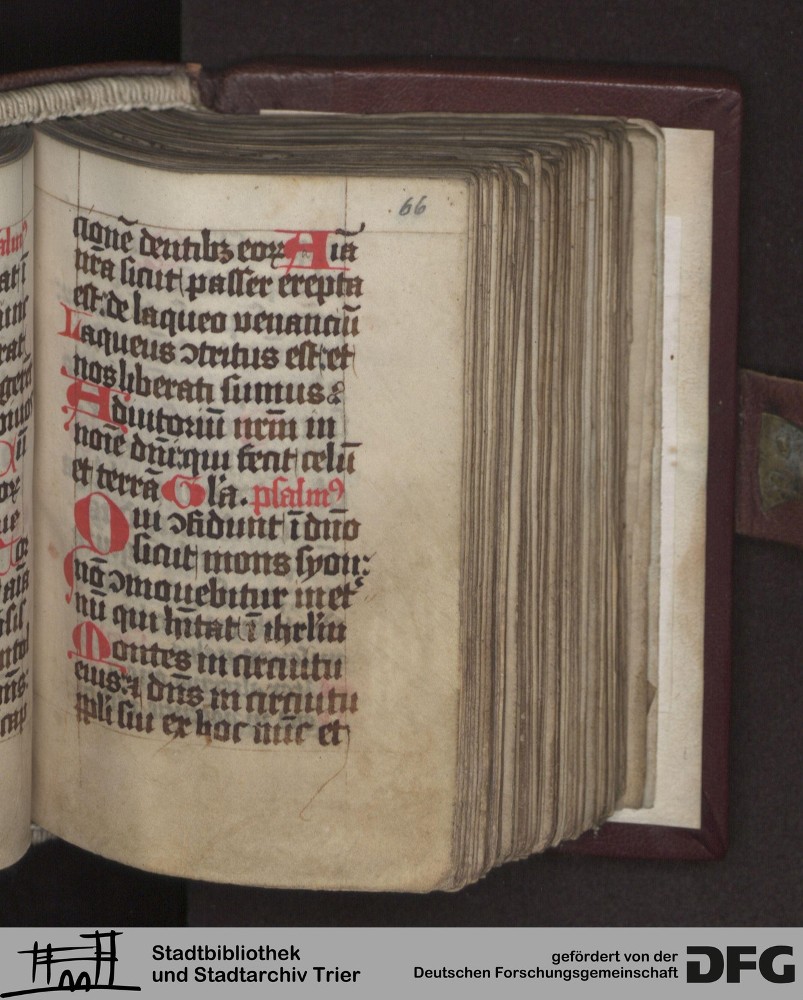 66
tionē dentibꝫ eoꝝ Aīa
nr̄a sicut passer erepta
est: de laqueo venanciū
Laqueus ↄtritus est: et
nos liberati sumus:
Adiutoriū nr̄m in
noīe dn̄i: qui fecit celū
et terrā Gl̄a. psalmꝰ
Qui ↄfidunt ī dn̄o
sicut mons syon:
nō ↄmouebitur in et᷑
nū qui hītat ī ihrl̄m
Montes in circuitu
eius: ⁊ dn̄s in circuitu
ppl̄i sui ex hoc nūc et
Stadtbibliothek
und Stadtarchiv Trier
gefördert von der
Deutschen Forschungsgemeinschaft
DFG